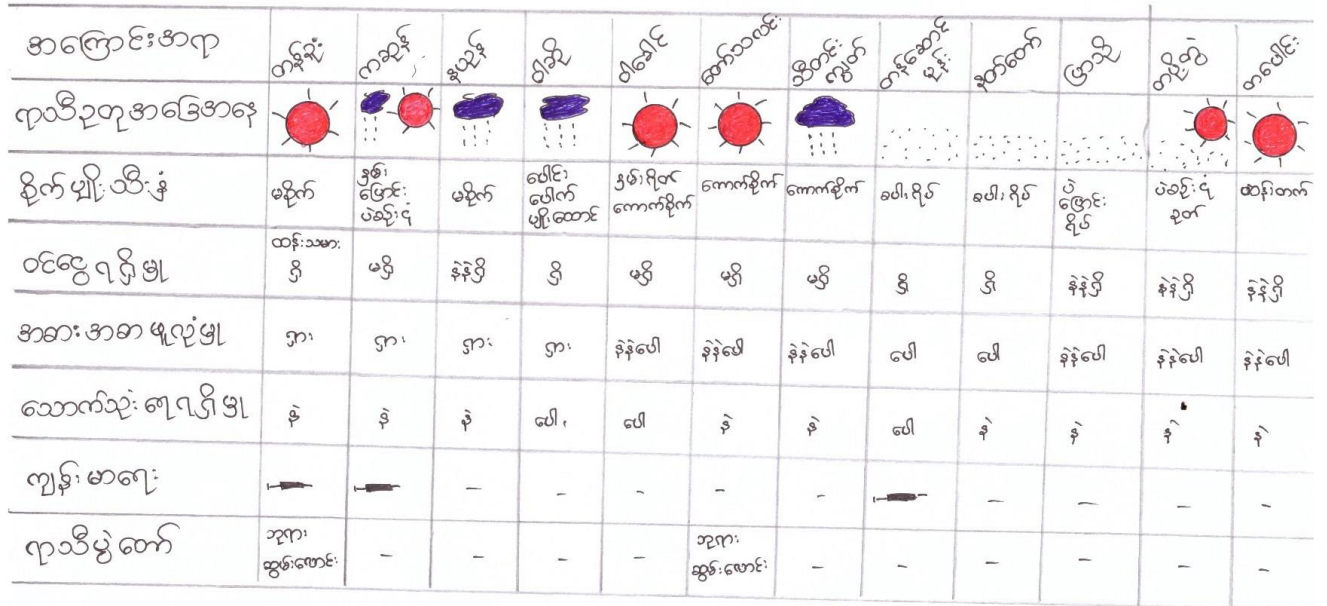 အကြောင်းအရာ တန်ခူး ကဆုန် နယုန် ဝါဆို ဝါခေါင် တော်သလင်း သီတင်းကျွတ် တန်ဆောင်မုန်း နတ်တော် ပြာသို တပို့တွဲ တပေါင်း
ရာသီဥတုအခြေအနေ
စိုက်ပျိုးသီးနှံ မစိုက် နှမ်း ပြောင်း ပဲစဉ်းငုံ မစိုက် ပေါင်း ပေါက် မျိုးထောင် နှမ်းရိတ် ကောက်စိုက် ကောက်စိုက် ကောက်စိုက် စပါးရိပ် စပါးရိပ် ပဲ ပြောင်း ရိပ် ပဲစဉ်းငုံ ခုတ် ထန်းတက်
ဝင်ငွေရရှိမှု ထန်းသမား ရှိ မရှိ နဲနဲရှိ ရှိ မရှိ မရှိ မရှိ ရှိ ရှိ နဲနဲရှိ နဲနဲရှိ နဲနဲရှိ
အစားအစာဖူလုံမှု ရှား ရှား ရှား ရှား နဲနဲပေါ နဲနဲပေါ နဲနဲပေါ ပေါ ပေါ နဲနဲပေါ နဲနဲပေါ နဲနဲပေါ
သောက်သုံးရေရရှိမှု နဲ နဲ နဲ ပေါ ပေါ နဲ နဲ ပေါ နဲ နဲ နဲ နဲ
ကျန်းမာရေး - - - - - - - - -
ရာသီပွဲတော် ဘုရား ဆွမ်းလောင်း - - - - ဘုရား ဆွမ်းလောင်း - - - - - -